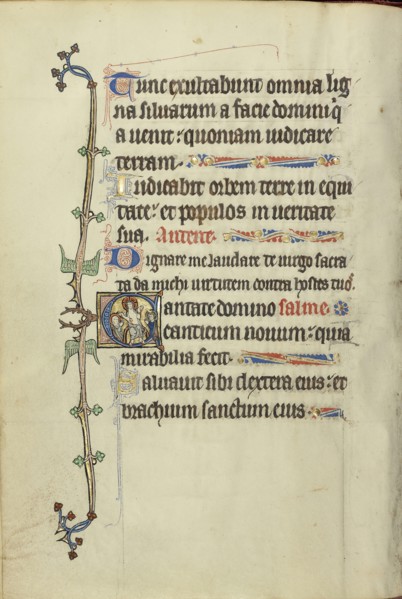 Tunc exultabunt omnia lig
na siluarum a facie domini q̄
a uenit : quoniam iudicare
terram.
Iudicabit orbem terre in equi
tate : et populos in ueritate
sua. Antene
Dignare me laudare te uirgo sacra
ta da michi uirtutem contra hostes tuos.
Cantate domino salme
canticum nouum : quia
mirabilia fecit.
Saluauit sibi dextera eius : et
brachium sanctum eius